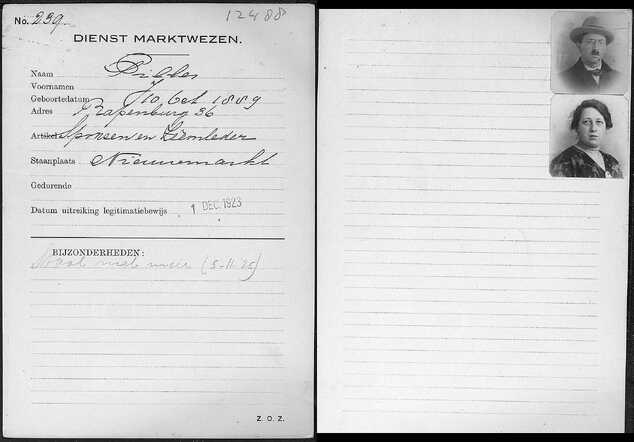 12488
No. 239
DIENST MARKTWEZEN.
Naam
Voornamen J
Geboortedatum 10 Oct 1889
Adres Rapenburg 36
Artikel Sponsen en Zeemleder
Staanplaats Nieuwmarkt
Gedurende
Datum uitreiking legitimatiebewijs 1 DEC. 1923
BIJZONDERHEDEN:
Staat niet meer (5-11-25)
Z. O. Z.